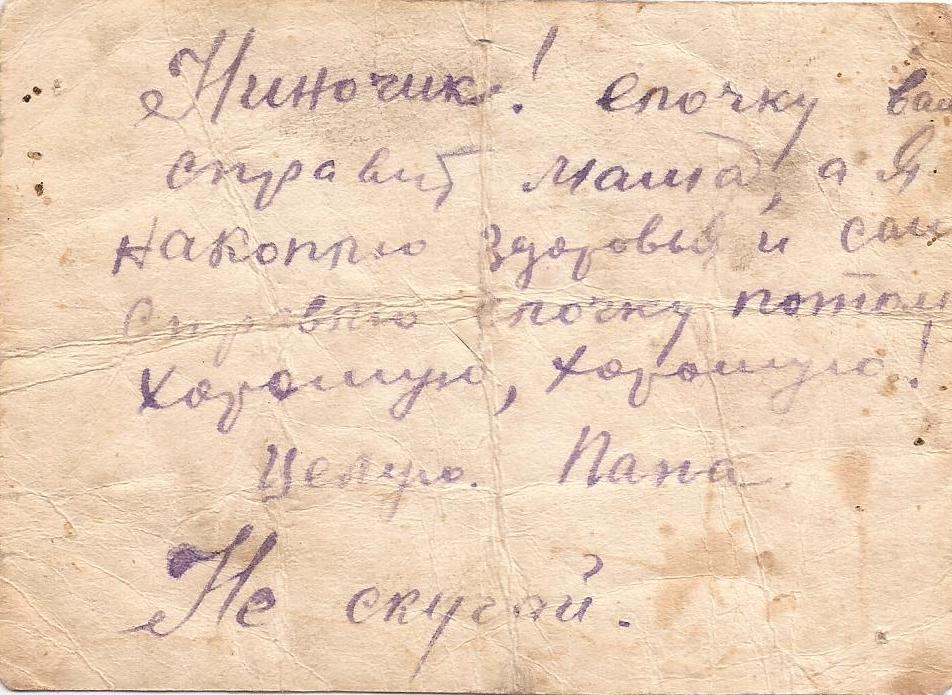 Ниночик! Елочку вам
справит мама, а Я
накоплю здоровья и сам
справлю елочку потом
хорошую, хорошую!
Целую. Папа.
Не скучай.